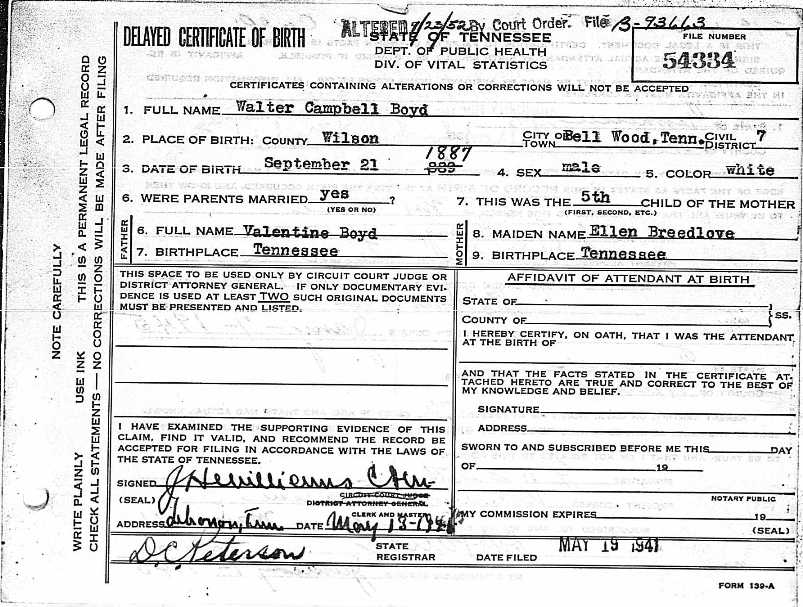 ALTERED 9/23/52 By Court Order. File B-93663
DELAYED CERTIFICATE OF BIRTH
STATE OF TENNESSEE
DEPT. OF PUBLIC HEALTH
DIV. OF VITAL STATISTICS
FILE NUMBER
54334
CERTIFICATES CONTAINING ALTERATIONS OR CORRECTIONS WILL NOT BE ACCEPTED
1. FULL NAME Walter Campbell Boyd
2. PLACE OF BIRTH: COUNTY Wilson CITY OR TOWN Bell Wood, Tenn. CIVIL DISTRICT 7
3. DATE OF BIRTH September 21 1887 4. SEX male 5. COLOR white
6. WERE PARENTS MARRIED yes ? 7. THIS WAS THE 5th CHILD OF THE MOTHER
(YES OR NO) (FIRST, SECOND, ETC.)
FATHER
6. FULL NAME Valentine Boyd
7. BIRTHPLACE Tennessee
MOTHER
8. MAIDEN NAME Ellen Breedlove
9. BIRTHPLACE Tennessee
THIS SPACE TO BE USED ONLY BY CIRCUIT COURT JUDGE OR
DISTRICT ATTORNEY GENERAL. IF ONLY DOCUMENTARY EVI-
DENCE IS USED AT LEAST TWO SUCH ORIGINAL DOCUMENTS
MUST BE PRESENTED AND LISTED.
I HAVE EXAMINED THE SUPPORTING EVIDENCE OF THIS
CLAIM, FIND IT VALID, AND RECOMMEND THE RECORD BE
ACCEPTED FOR FILING IN ACCORDANCE WITH THE LAWS OF
THE STATE OF TENNESSEE.
SIGNED
(SEAL)
CIRCUIT COURT JUDGE
DISTRICT ATTORNEY GENERAL
CLERK AND MASTER
ADDRESS Lebanon, Tenn DATE May 13-1941
AFFIDAVIT OF ATTENDANT AT BIRTH
STATE OF
COUNTY OF
SS.
I HEREBY CERTIFY, ON OATH, THAT I WAS THE ATTENDANT
AT THE BIRTH OF
AND THAT THE FACTS STATED IN THE CERTIFICATE AT-
TACHED HERETO ARE TRUE AND CORRECT TO THE BEST OF
MY KNOWLEDGE AND BELIEF.
SIGNATURE
ADDRESS
SWORN TO AND SUBSCRIBED BEFORE ME THIS DAY
OF 19
NOTARY PUBLIC
MY COMMISSION EXPIRES 19
(SEAL)
D.C. Peterson STATE REGISTRAR DATE FILED MAY 19 1941
FORM 139-A
NOTE CAREFULLY
WRITE PLAINLY USE INK THIS IS A PERMANENT LEGAL RECORD
CHECK ALL STATEMENTS — NO CORRECTIONS WILL BE MADE AFTER FILING